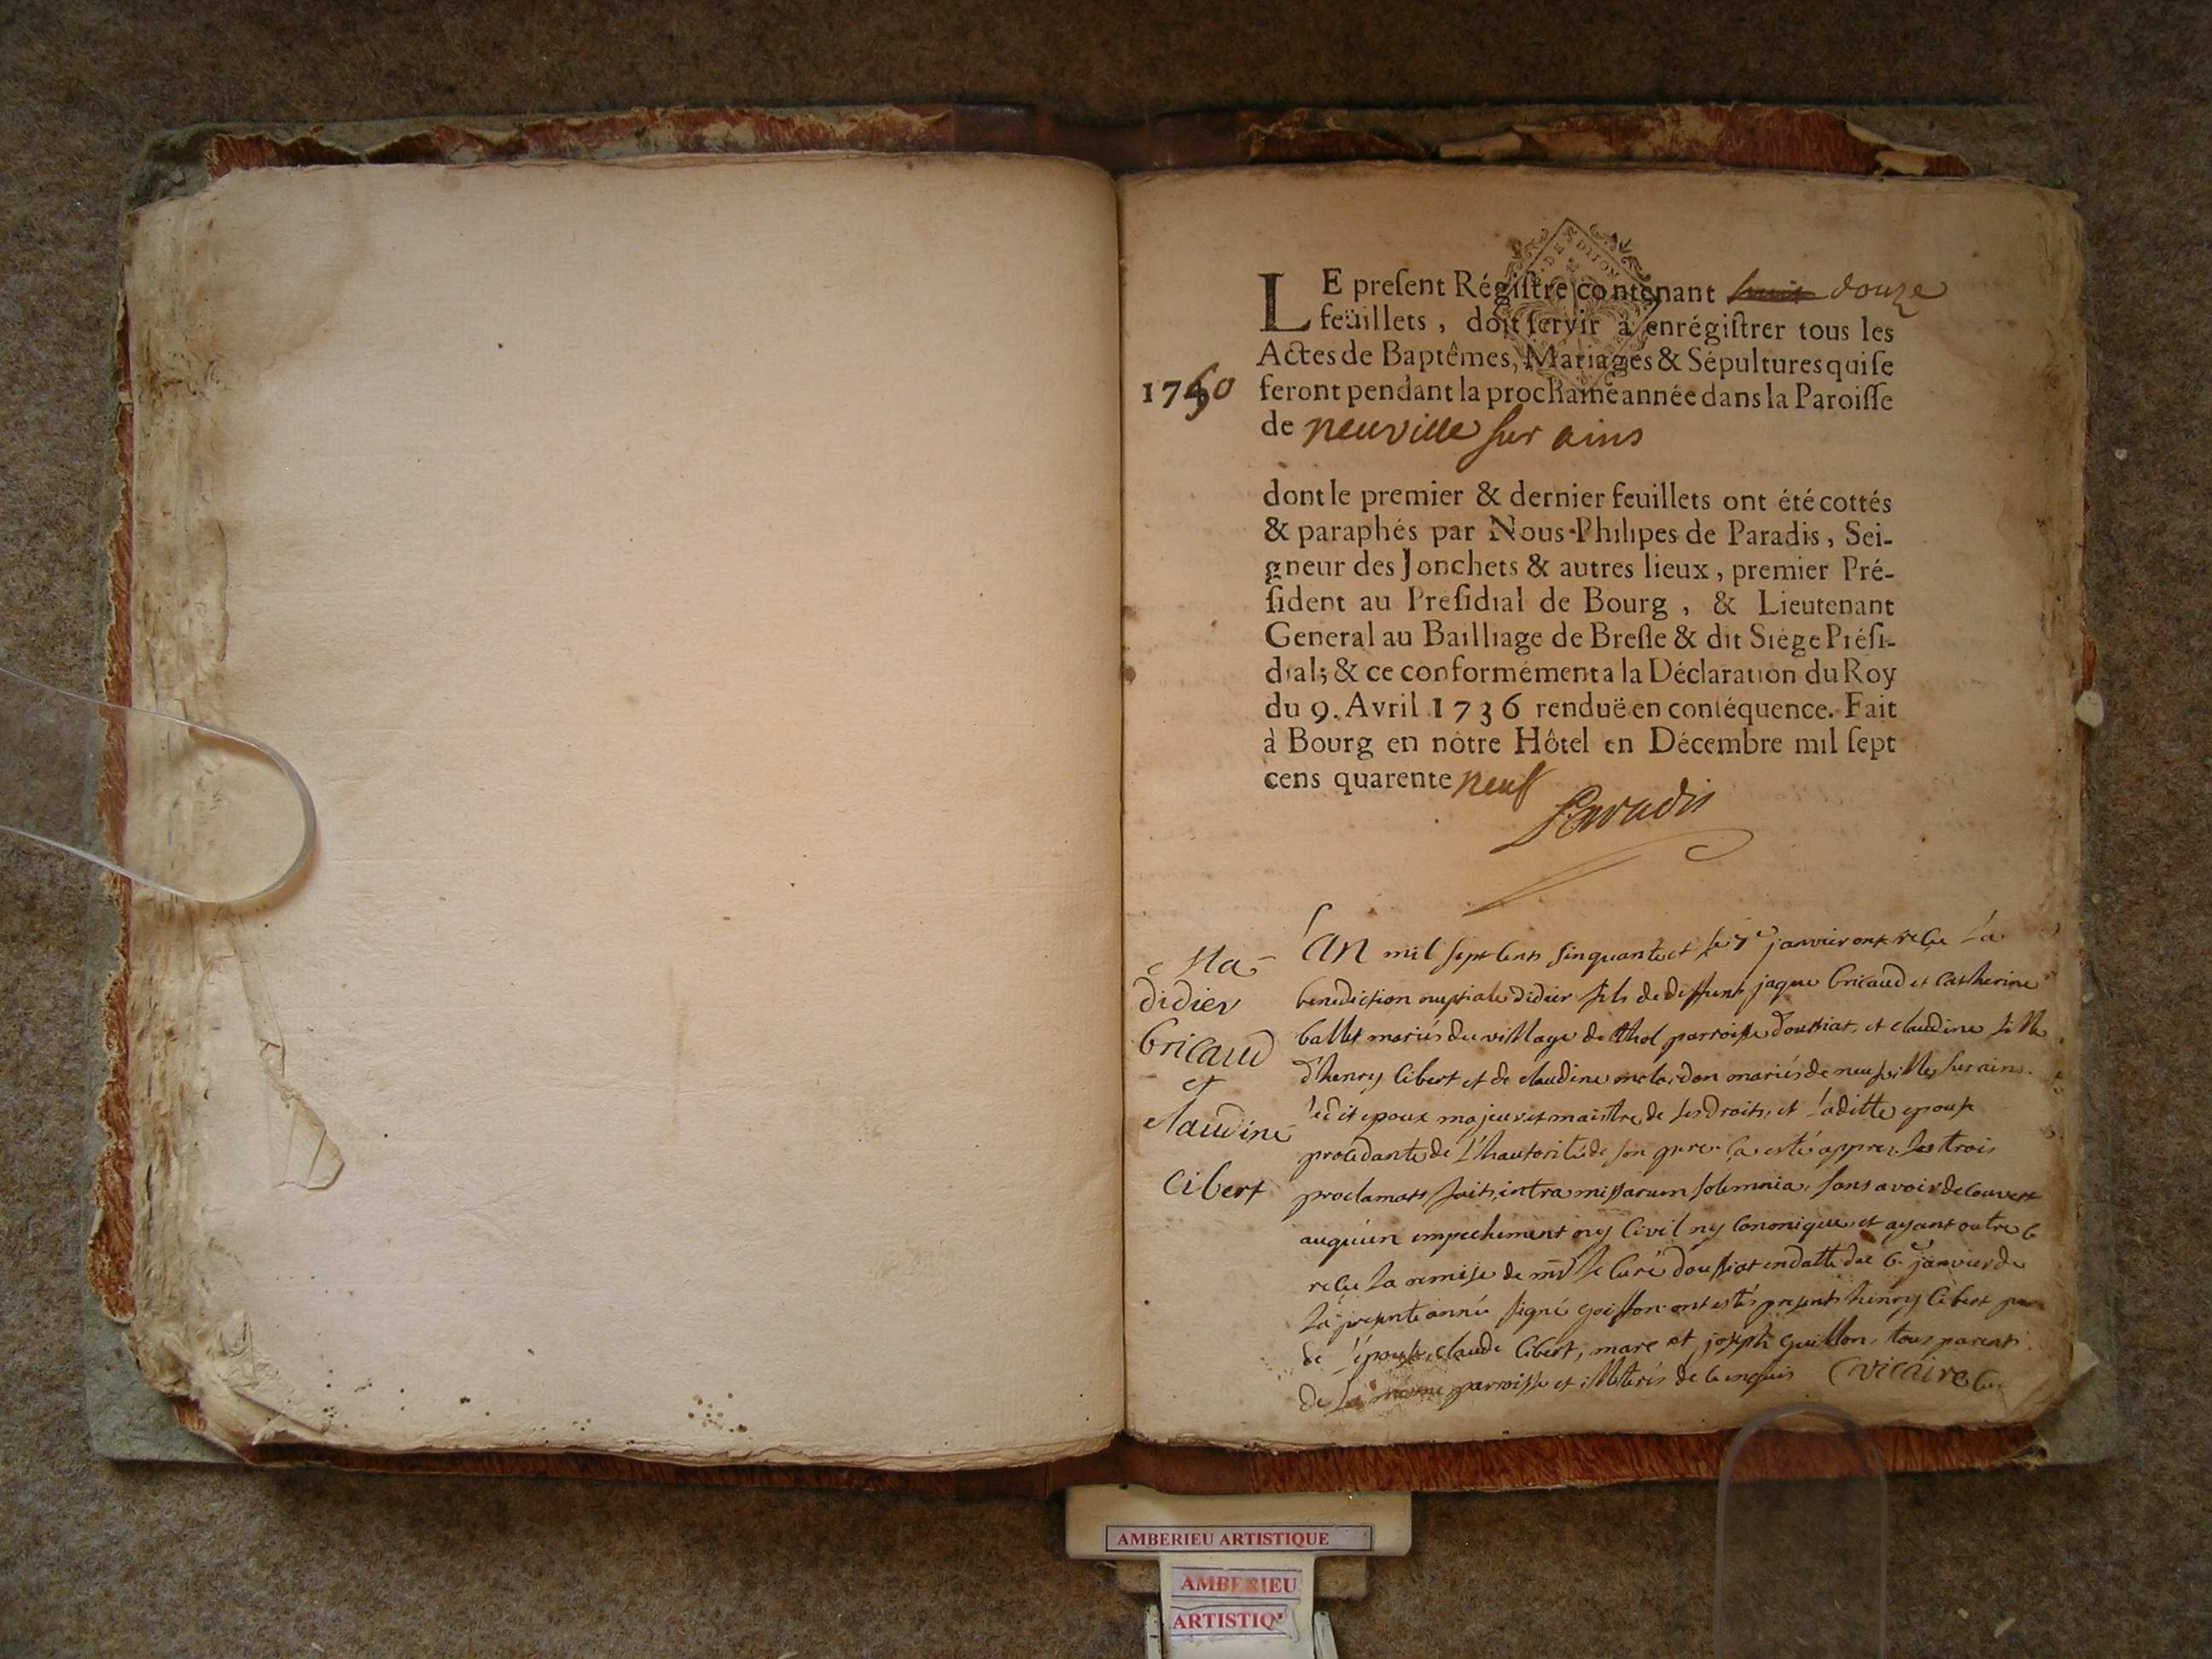 DE DIJON
LE preſent Régiſtre contenant douze
feüillets, doit ſervir à enrégiſtrer tous les
Actes de Baptêmes, Mariages & Sépultures qui ſe
1750
feront pendant la prochaine année dans la Paroiſſe
de neuville sur ains
dont le premier & dernier feuillets ont été cottés
& paraphés par Nous Philipes de Paradis, Sei-
gneur des Jonchets & autres lieux, premier Pré-
ſident au Preſidial de Bourg, & Lieutenant
General au Bailliage de Breſſe & dit Siége Préſi-
dial; & ce conformément a la Déclaration du Roy
du 9. Avril 1736 renduë en conſéquence. Fait
à Bourg en nôtre Hôtel en Décembre mil ſept
cens quarente neuf
Paradis
Ma
didier
bricaud
et
claudine
Cibert
l'an mil sept cents sinquante et le 7e janvier ont reçu la
benediction nuptiale didier fils de deffunt jaque bricaud et catherine
ballet mariés du village de thol parroisse doussiat, et claudine fille
d'henry Cibert et de claudine mariés de neufville sur ains
ledit epoux majeur et maistre de ses droits, et laditte epouse
procedante de l'hautorité de son pere ça esté apprez les trois
proclamats faits intra missarum solemnia, sans avoir découvert
auqu'un empechement ny Civil ny Canonique, et ayant outre ce
reçu la remise de mr le Curé doussiat en datte du 6e janvier de
la presente année signé goiffon ont estés presents henry Cibert pere
de l'épouse, claude Cibert, marc et joseph guillon, tous parents
de la meme parroisse et illiterés de ce enquis Vicaire
AMBERIEU ARTISTIQUE
AMBERIEU
ARTISTIQ'